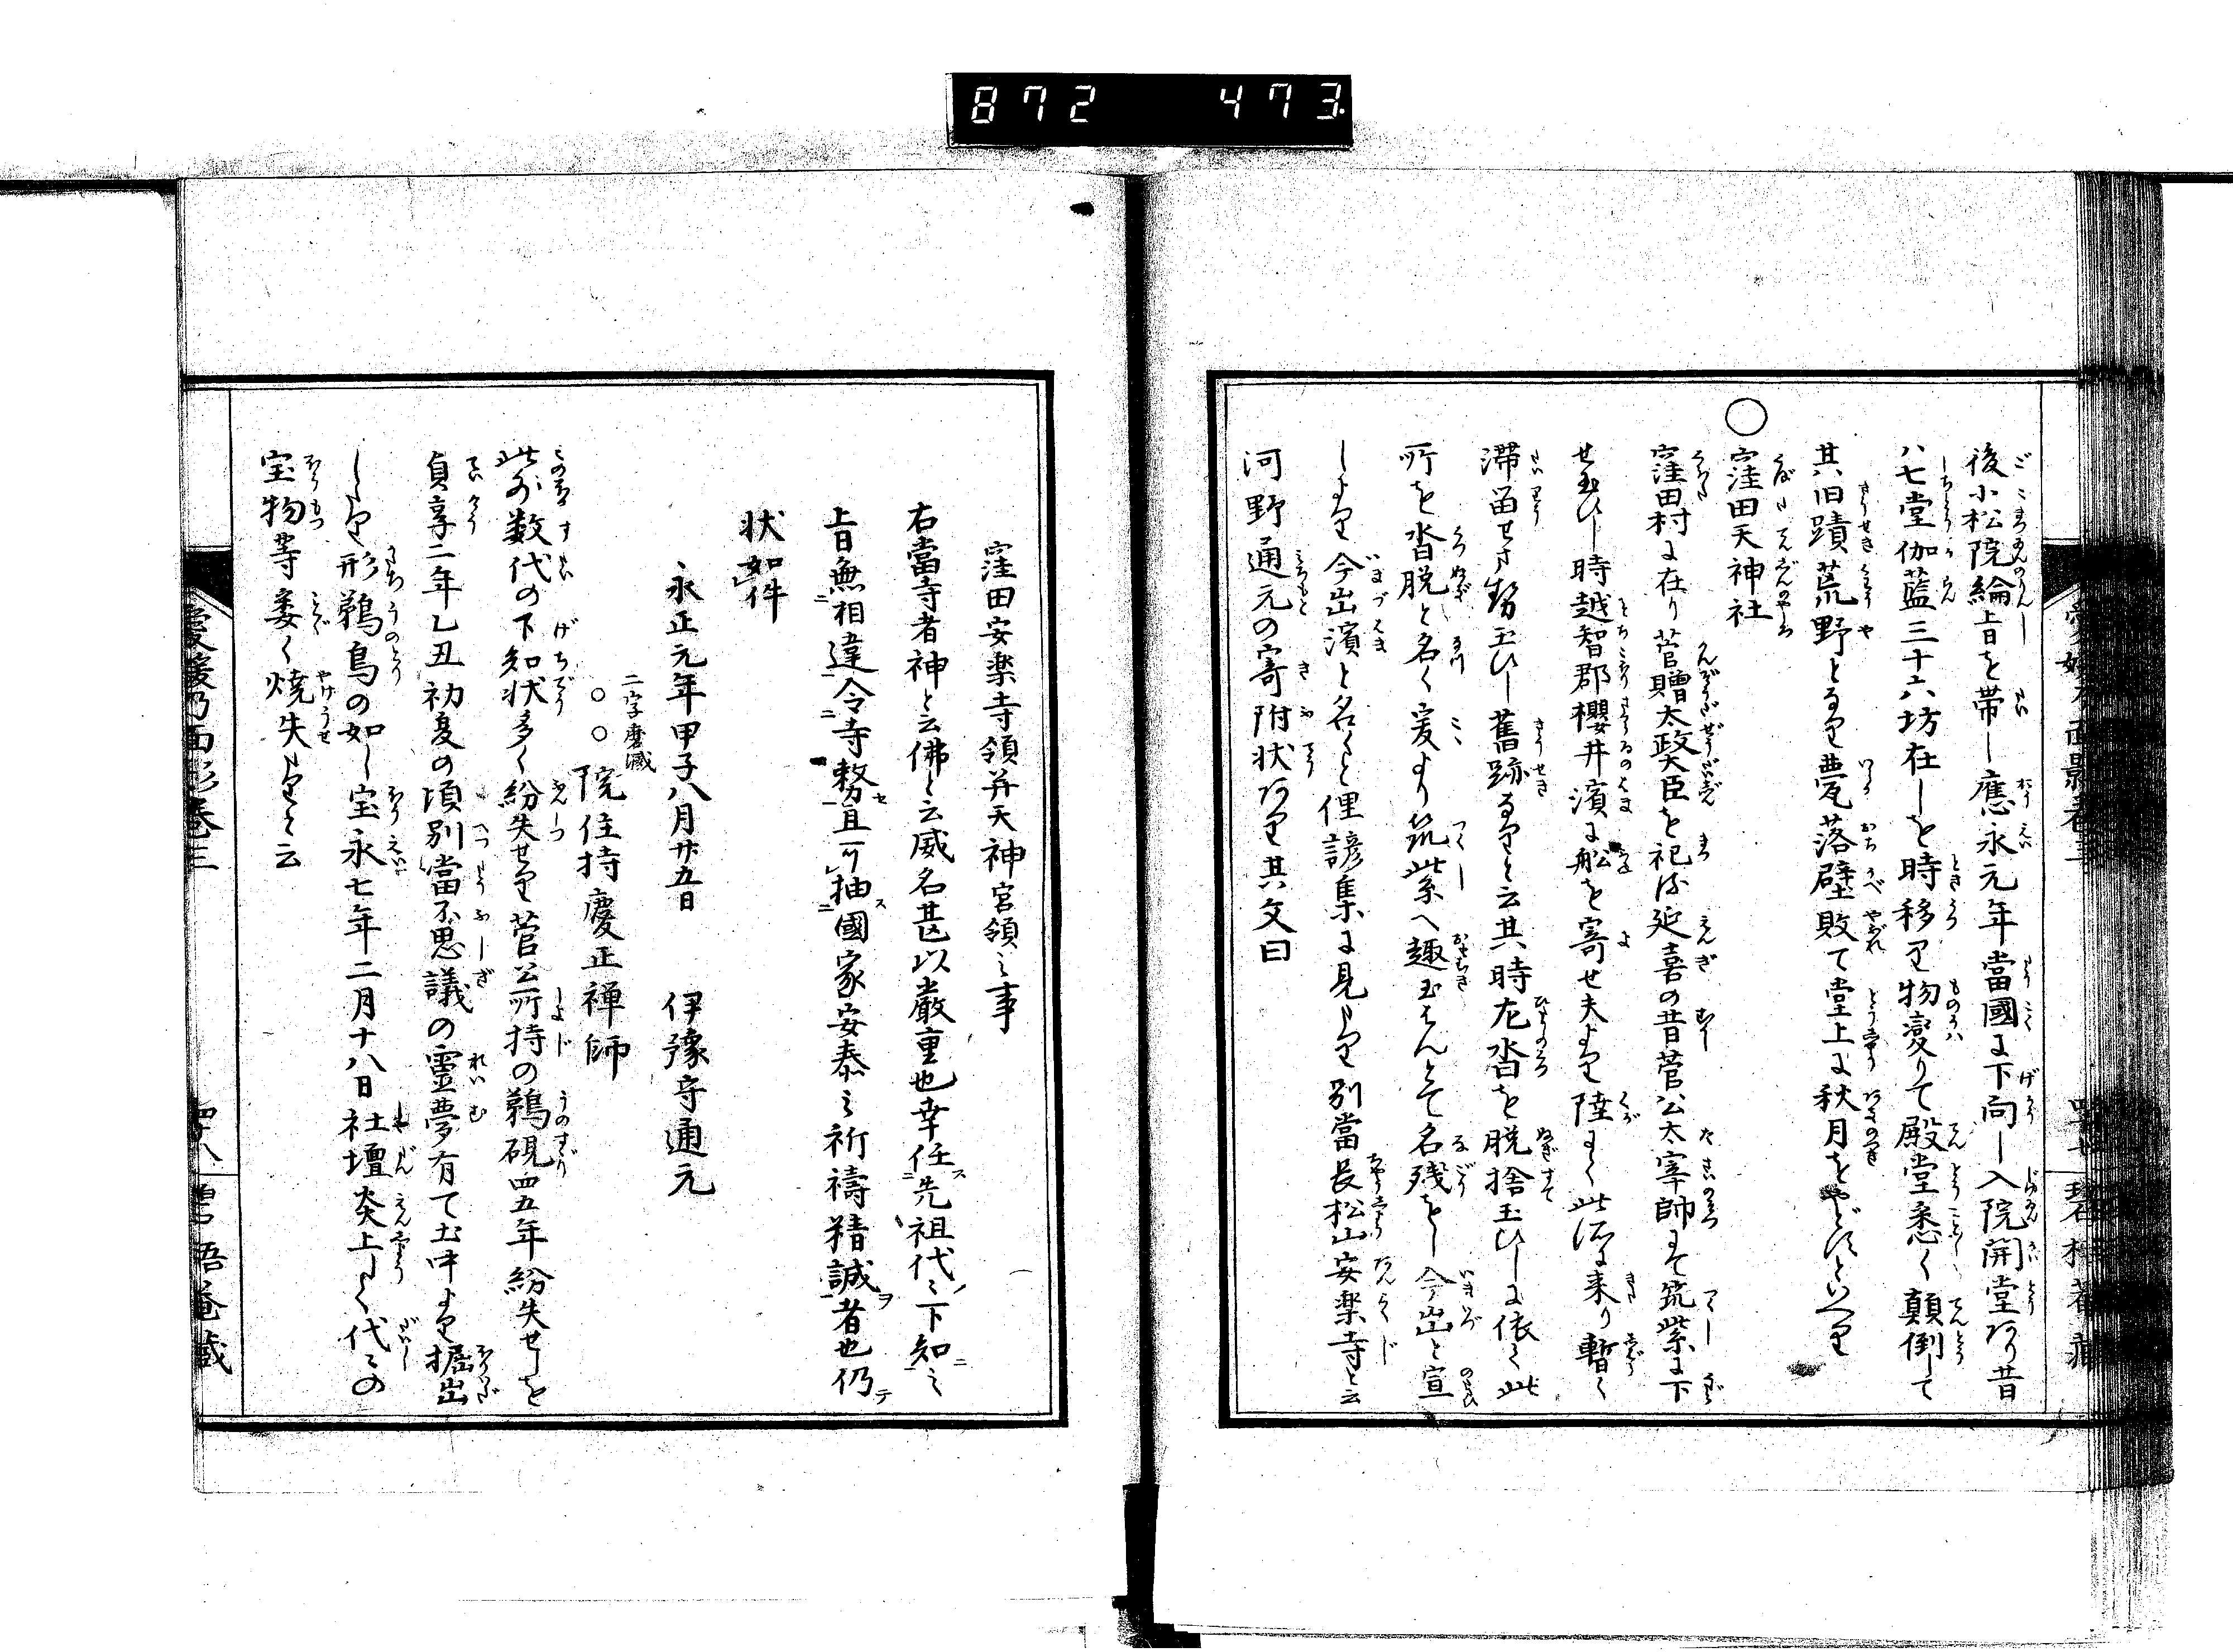 872 473
後小松院綸旨を帯し應永元年當國に下向し入院開堂あり昔
ハ七堂伽藍三十六坊在しを時移り物変りて殿堂悉く顛倒して
其旧蹟荒野となり甍落壁敗て堂上に秋月をやどすといへり
○窪田天神社
窪田村に在り菅贈太政大臣を祀る延喜の昔菅公太宰帥にて筑紫に下
せ玉ひし時越智郡櫻井濱に舩を寄せ夫より陸にて此所に来り暫く
滞留せさせ玉ひし舊跡なりと云其時左沓を脱捨玉ひしに依て此
所を沓脱と名く爰より筑紫へ趣玉はんとて名残をし今出と宣
しより今出濱と名くと俚諺集に見えたり別當長松山安楽寺と云
河野通元の寄附状あり其文曰
窪田安楽寺領并天神宮領之事
右當寺者神と云佛と云威名甚以嚴重也幸任先祖代々下知之
旨無相違令寺務且可抽國家安泰之祈禱精誠者也仍
状如件
永正元年甲子八月廿五日 伊豫守通元
二字磨滅
○○院住持慶正禅師
此外数代の下知状多く紛失せり菅公所持の鵜硯四五年紛失せしを
貞享二年乙丑初夏の頃別當不思議の霊夢有て土中より掘出
したり形鵜鳥の如し宝永七年二月十八日社壇炎上して代々の
宝物等委く焼失たりと云
愛媛乃面影巻三 四十八